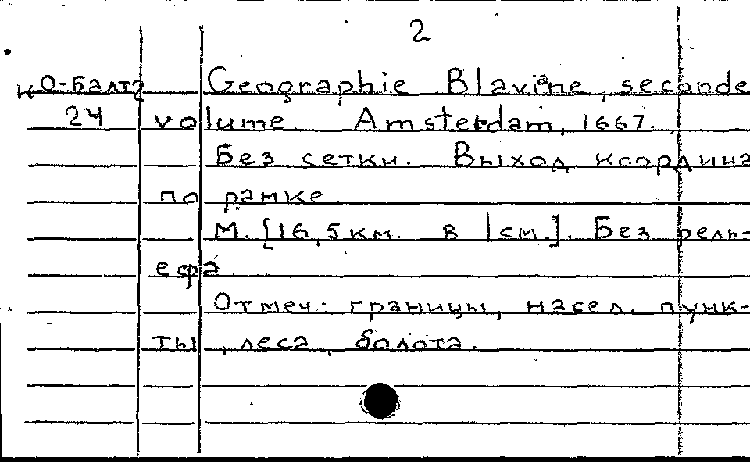 2
Ко-Балт Geographie Blaviane, seconde
24 volume Amsterdam, 1667.
Без сетки. Выход координа
по рамке
М. [16,5км. в 1см.]. Без рель-
ефа
Отмеч.: границы, насел. пунк-
ты, леса, болота.